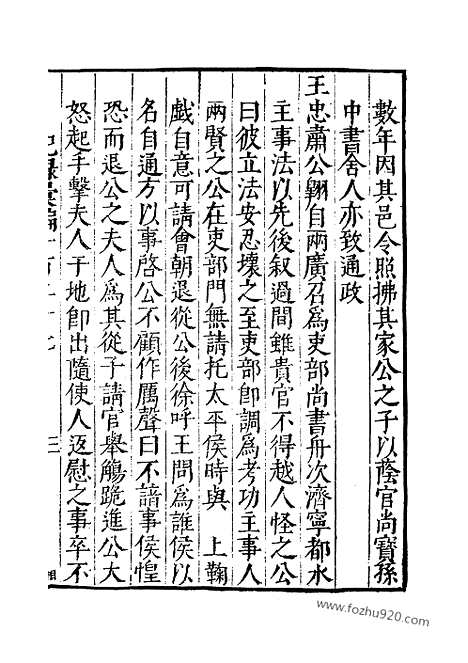 數年因其邑令照拂其家公之子以蔭官尚寶孫
中書舍人亦致通政
王忠肅公翺自兩廣召爲吏部尚書舟次濟寧都水
主事法以先後敘過閘雖貴官不得越人怪之公
曰彼立法安忍壞之至吏部即調爲考功主事人
兩賢之公在吏部門無請托太平侯時與 上鞠
戲自意可請會朝退從公後徐呼王問爲誰侯以
名自通方以事啓公不顧作厲聲曰不諳事侯惶
恐而退公之夫人爲其從子請官舉觴跪進公大
怒起手擊夫人于地即出隨使人返慰之事卒不
三
www.fozhu920.com